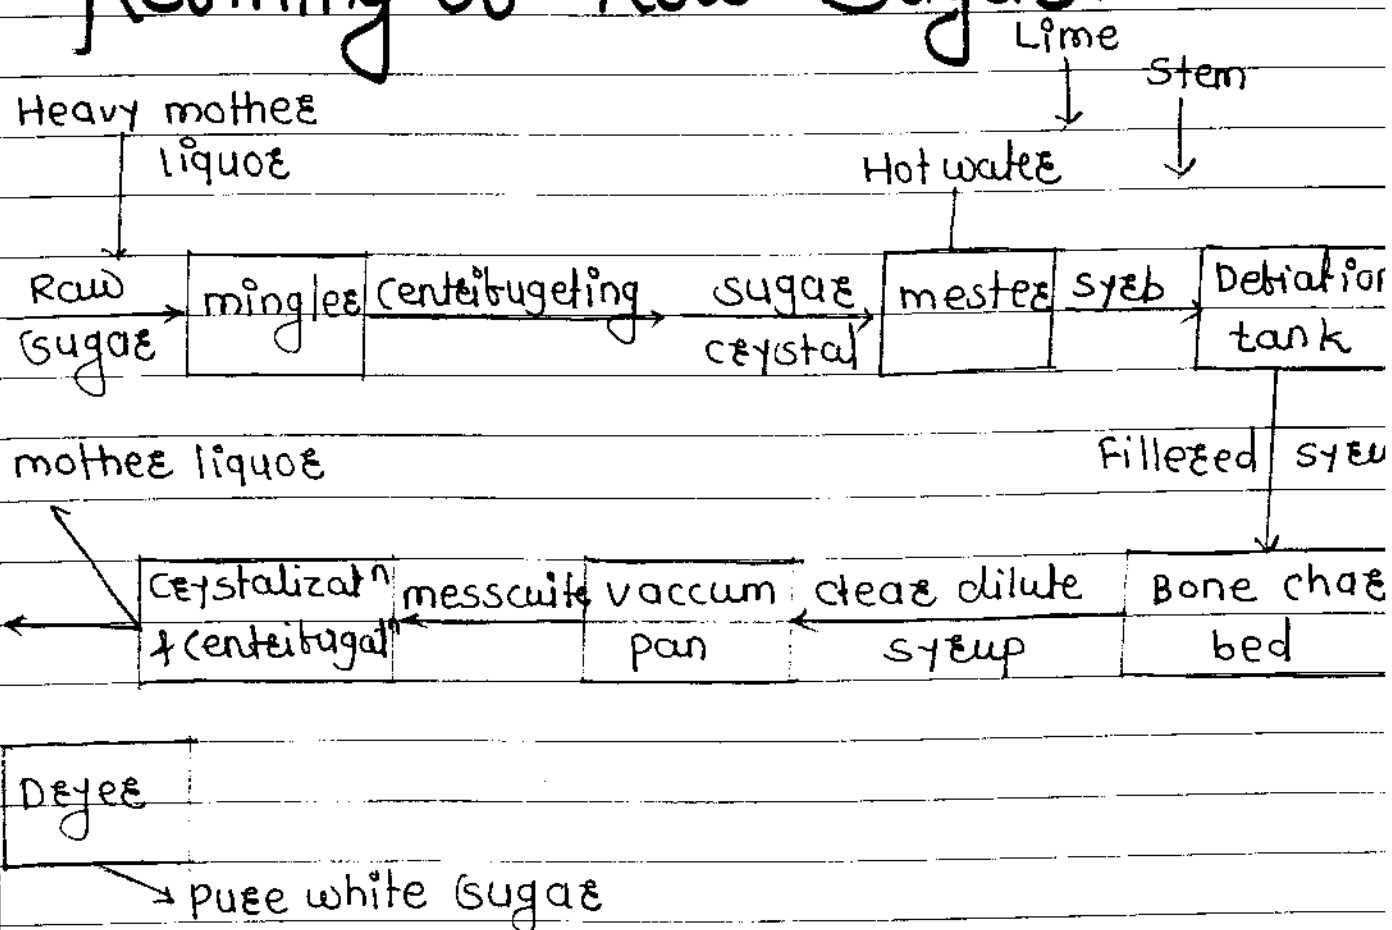 Refining of Raw Sugar.
Lime
Stem
Heavy mother
liquor
Hot water
Raw
sugar
mingler
centrifugeting
sugar
crystal
mester
syrb
Defiation
tank
mother liquor
Fillered syru
crystalizatⁿ
& centrifugatⁿ
messcuite
vaccum
pan
clear dilute
syrup
Bone char
bed
Dryer
pure white sugar